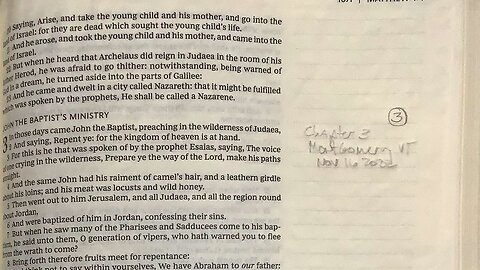 Saying, Arise, and take the young child and his mother, and go into the
of Israel: for they are dead which sought the young child's life.
And he arose, and took the young child and his mother, and came into the
of Israel.
But when he heard that Archelaus did reign in Judaea in the room of his
Herod, he was afraid to go thither: notwithstanding, being warned of
in a dream, he turned aside into the parts of Galilee:
And he came and dwelt in a city called Nazareth: that it might be fulfilled
which was spoken by the prophets, He shall be called a Nazarene.
JOHN THE BAPTIST'S MINISTRY
3 In those days came John the Baptist, preaching in the wilderness of Judaea,
And saying, Repent ye: for the kingdom of heaven is at hand.
For this is he that was spoken of by the prophet Esaias, saying, The voice
of one crying in the wilderness, Prepare ye the way of the Lord, make his paths
straight.
4 And the same John had his raiment of camel's hair, and a leathern girdle
about his loins; and his meat was locusts and wild honey.
5 Then went out to him Jerusalem, and all Judaea, and all the region round
about Jordan,
6 And were baptized of him in Jordan, confessing their sins.
7 But when he saw many of the Pharisees and Sadducees come to his bap-
tism, he said unto them, O generation of vipers, who hath warned you to flee
from the wrath to come?
8 Bring forth therefore fruits meet for repentance:
think not to say within yourselves, We have Abraham to our father:
3
Chapter 3
Montgomery VT
Nov 16 2022